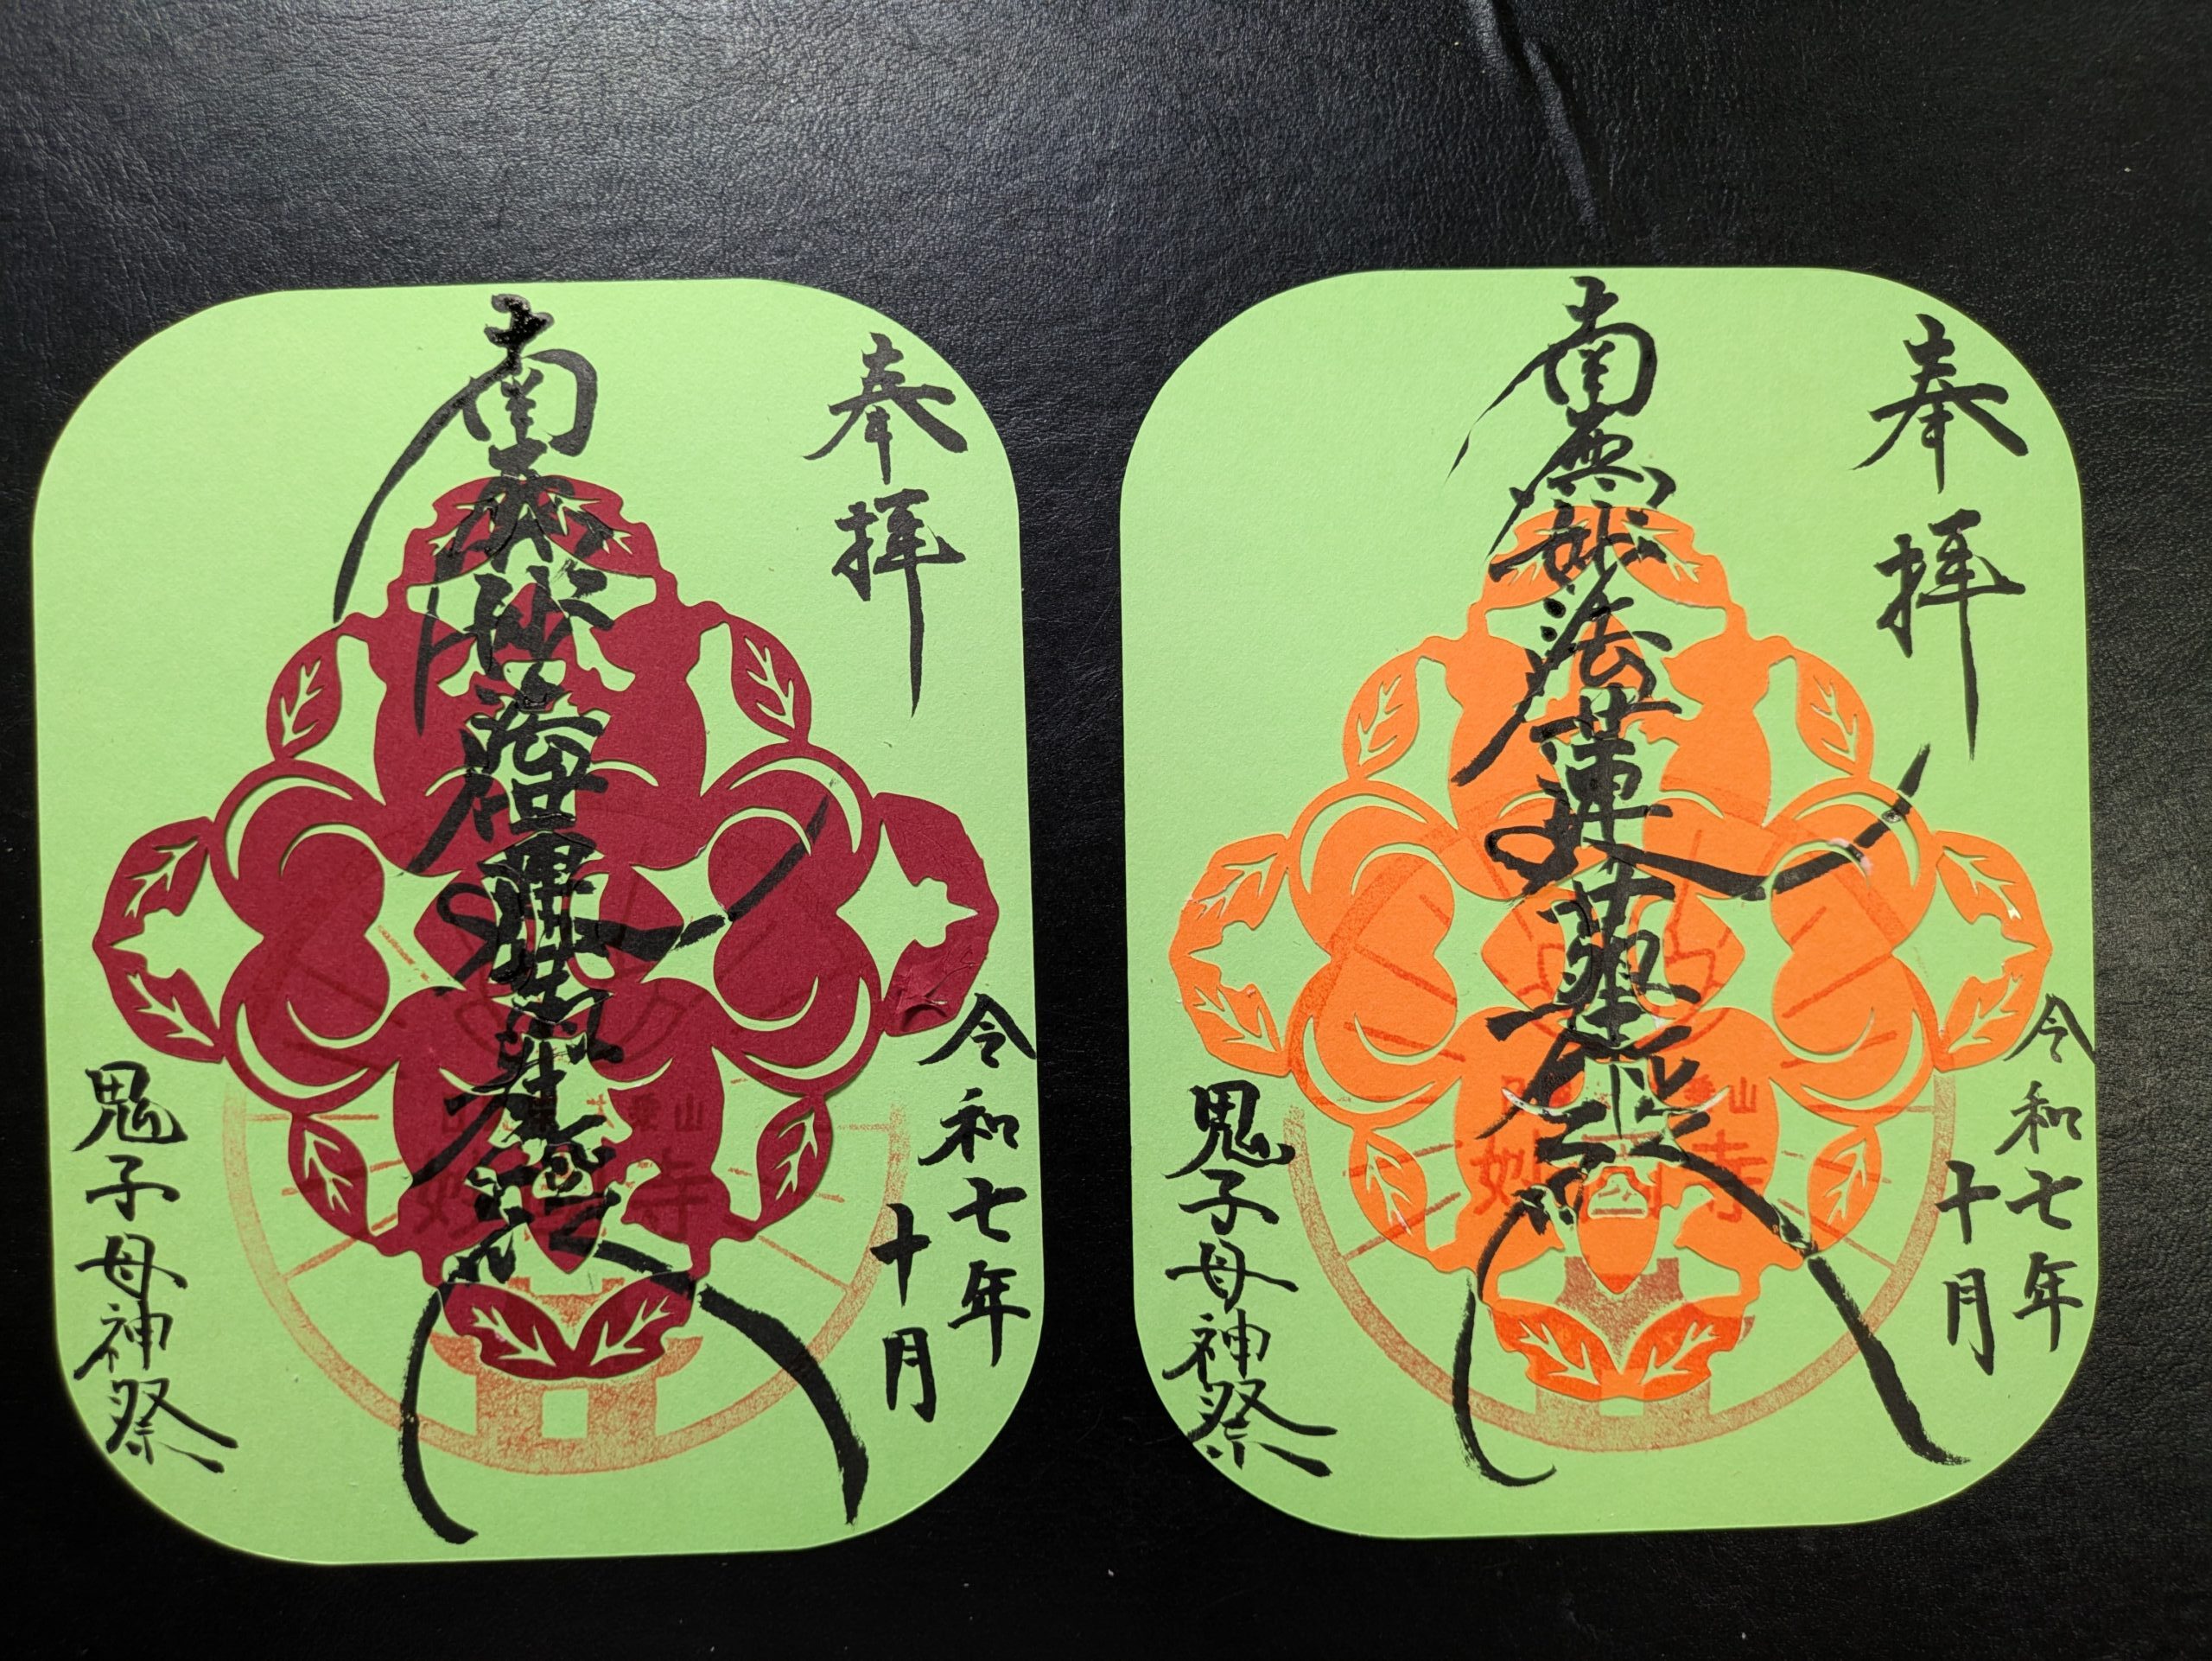 奉拝
令和七年
十月
南無妙法蓮華経
鬼子母神祭
奉拝
令和七年
十月
南無妙法蓮華経
鬼子母神祭